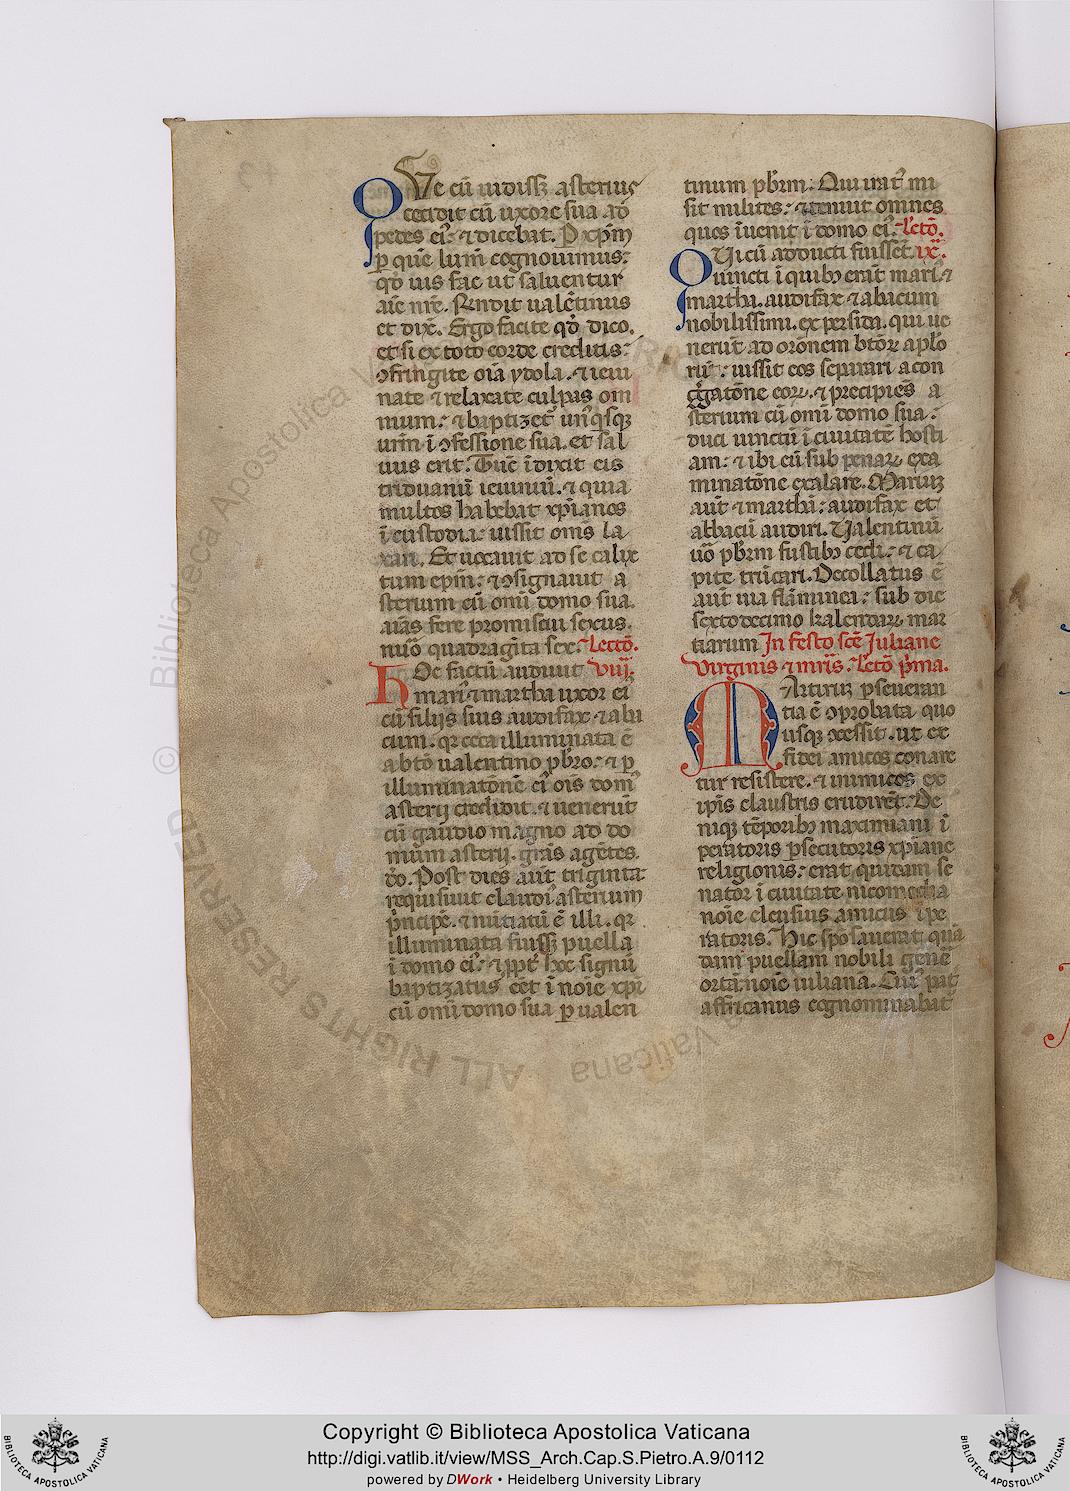 Qve cū uidissꝫ asterius
cecidit cū uxore sua ad
pedes eiꝰ. ⁊ dicebat. P xp̄m
ꝑ quē lum̄ cognouimus:
qd̄ uis fac ut saluentur
aīe nr̄e. R̄ndit ualētinus
et dix̄. Ergo facite qd̄ dico.
et si ex toto corde creditis:
ꝯfringite oīa ydola. ⁊ ieiu
nate ⁊ relaxate culpas om
nium: ⁊ baptizetꝰ unꝰqͥsqꝫ
ur̄m ī ꝯfessione sua. et sal
uus erit. Tūc īdixit eis
triduanū ieiuniū. ⁊ quia
multos habebat xp̄ianos
ī custodia: iussit om̄s la
xari. Et uocauit ad se calix
tum ep̄m: ⁊ ꝯsignauit a
sterium cū omī domo sua.
aīas fere promiscui sexus.
nūo quadragīta sex. Lectō.
Hoc factū audiuit viij.
mariꝰ ⁊ martha uxor ei
cū filijs suis audifax ⁊ aba
cum. qr̄ ceca illuminata ē
a btō ualentino pb̄ro: ⁊ ꝑ
illuminatōnē eiꝰ oīs domꝰ
asterij credidit. ⁊ uenerūt
cū gaudio magno ad do
mum asterij. gr̄as agētes.
dō. Post dies aūt triginta
requisiuit claudiꝰ asterium
pͥncipē. ⁊ nūtiatū ē illi. qr̄
illuminata fuissꝫ puella
ī domo eiꝰ: ⁊ ꝓpt̄ hoc signū
baptizatus eēt ī noīe xp̄i
cū omī domo sua ꝑ ualen
tinum pb̄rm: Qui iratꝰ mi
sit milites: ⁊ tenuit omnes
quos īuenit ī domo eiꝰ: Lectō.
Qui cū adducti fuissēt ix.
uincti ī quibꝰ erāt mariꝰ ⁊
martha. audifax ⁊ abacum
nobilissimi. ex persida. qui ue
nerūt ad orōnem btōꝝ aplō
rū: iussit eos separari a con
gͤgatōne eoꝝ. ⁊ precipiēs a
sterium cū omī domo sua:
duci uinctū ī ciuitatē hosti
am: ⁊ ibi cū sub penaꝝ exa
minatōne exalare. Mariuꝫ
aūt ⁊ marthā: audifax et
abbacū audiri. Ualentinū
uō pb̄rm fustibꝰ cedi: ⁊ ca
pite trūcari. Decollatus ē
aūt uia flāminea: sub die
sextodecimo kalendaꝝ mar
tiarum In festo scē Juliane
virginis ⁊ mr̄is. Lectō pͥma.
Martiruꝫ ꝑseueran
tia ē ꝯprobata quo
usqꝫ ꝓcessit. ut et
fidei amicos conare
tur resistere. ⁊ inimicos ex
ip̄is claustris erudirēt. De
niqꝫ tēporibꝰ maximiani ī
peratoris ꝑsecutoris xp̄iane
religionis: erat quidam se
nator ī ciuitate nicomedia
noīe eleusius amicus īpe
ratoris. Hic spōsauerat quā
dam puellam nobili genē
ortā: noīe iulianā. Cuiꝰ pat̄
affricanus cognominabat̄
Copyright © Biblioteca Apostolica Vaticana
http://digi.vatlib.it/view/MSS_Arch.Cap.S.Pietro.A.9/0112
powered by DWork • Heidelberg University Library